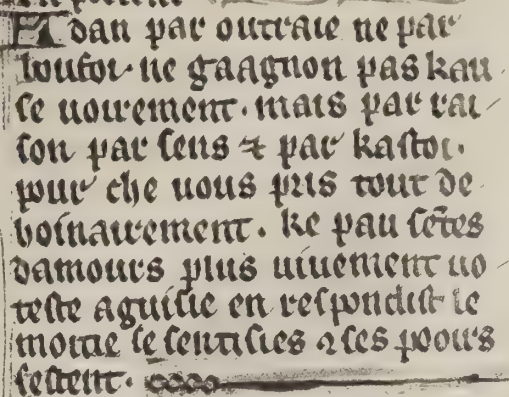 Et dan par outraie ne par
boufoi · ne gaagnon pas kau
se uoirement · mais par rai
son par sens ⁊ par kastoi ·
pour che uous pris tout de
boinairement · ke pau sētes
damours plus uiuement uo
teste aguisie en respondist le
moitie se sentisies ⁊ ses pooirs
festent ·